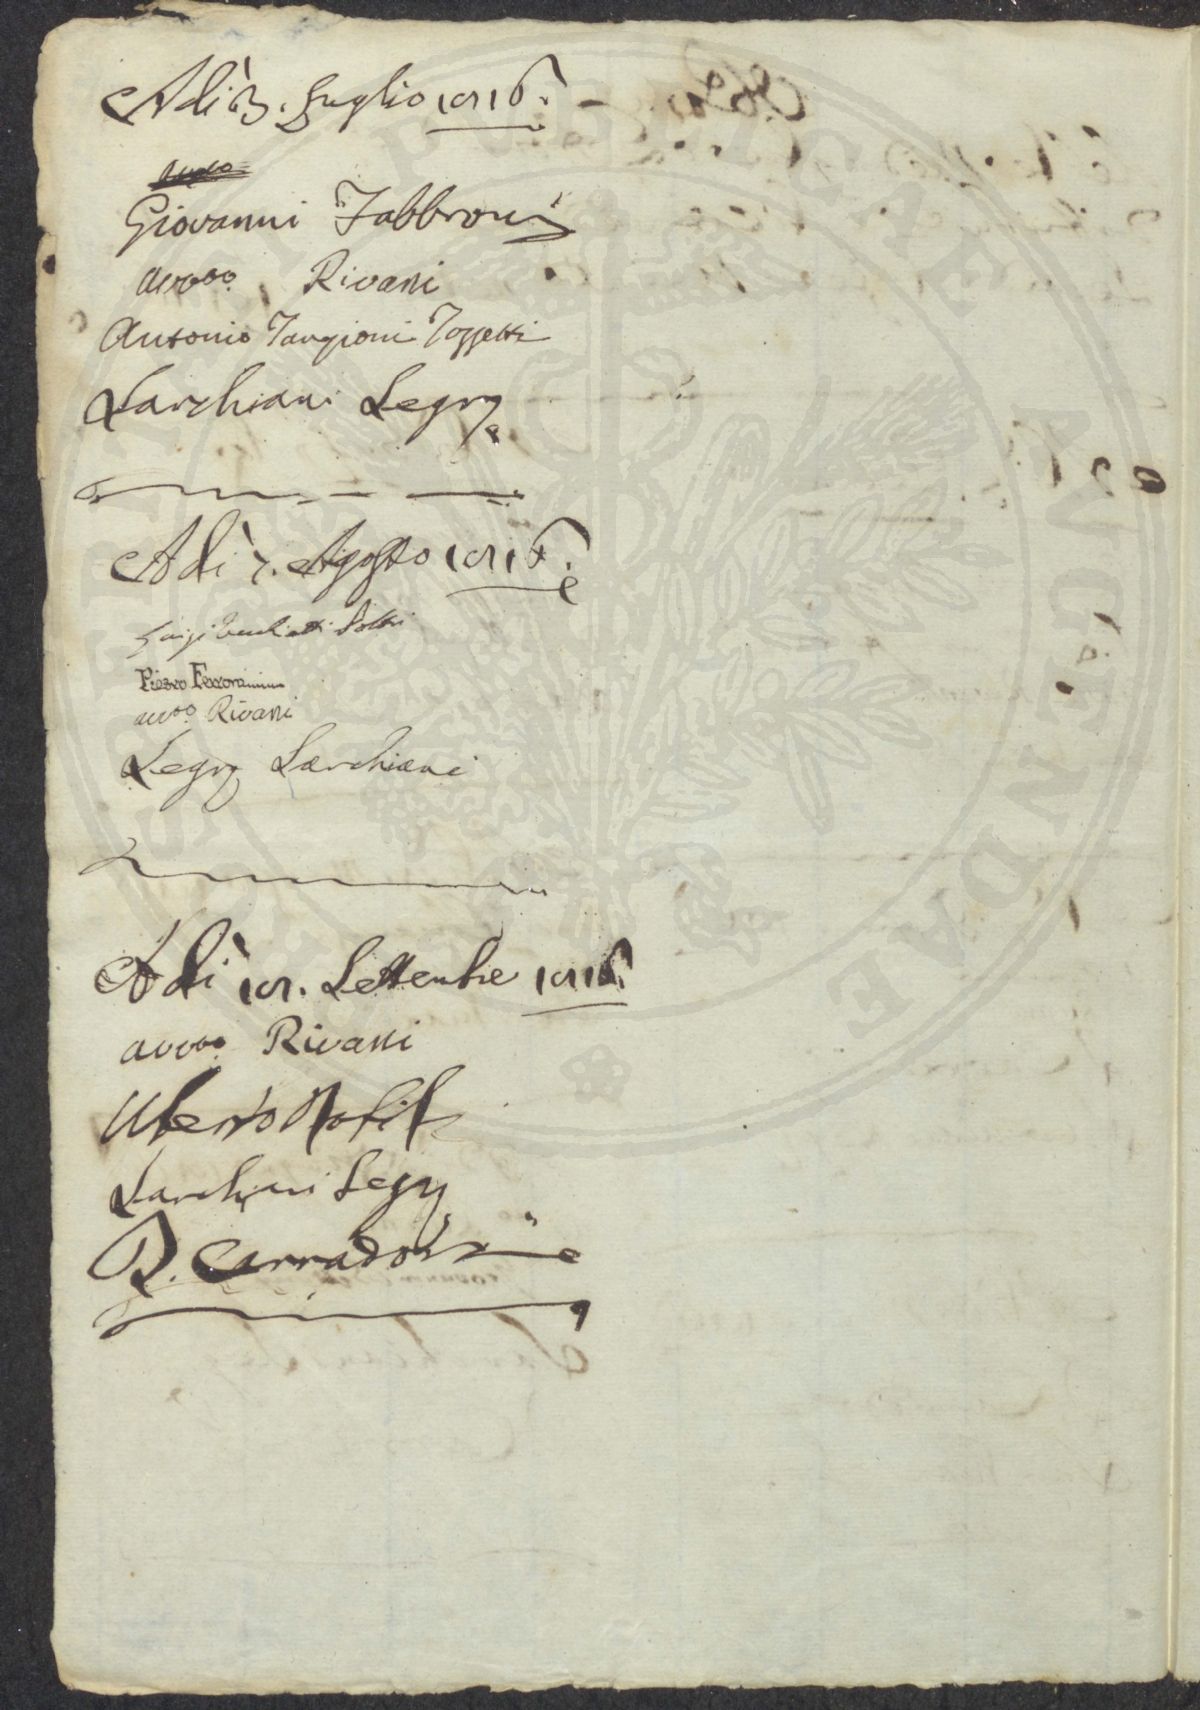 Adì 3. Luglio 1816.
Giovanni Fabbroni
avvoo. Rivani
Antonio Targioni Tozzetti
Sarchiani Segr
Adì 7. Agosto 1816.
Luigi
Pietro Ferroni
avvo. Rivani
Segr Sarchiani
Adì 18. Settembre 1816.
avvoo. Rivani
Uberto Nobili
Sarchiani Segr
Carradori